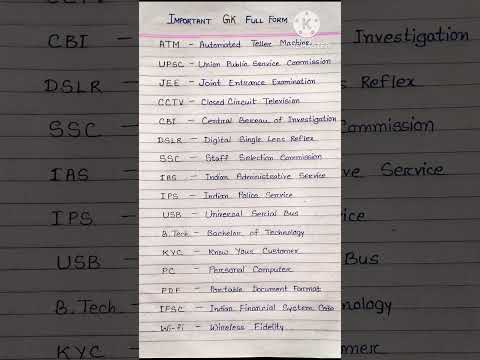 IMPORTANT GK FULL FORM
ATM - Automated Teller Machine
UPSC - Union Public Service Commission
JEE - Joint Entrance Examination
CCTV - Closed Circuit Television
CBI - Central Bereau of Investigation
DSLR - Digital Single Lens Reflex
SSC - Staff Selection Commission
IAS - Indian Administrative Service
IPS - Indian Police Service
USB - Universal Serial Bus
B.Tech - Bachelor of Technology
KYC - Know Your Customer
PC - Personal Computer
PDF - Portable Document Format
IFSC - Indian Financial System Code
Wi-fi - Wireless Fidelity
CBI
DSLR
SSC
IAS
IPS
USB
B.Tech
KYC
Investigation
Reflex
Commission
Service
Bus